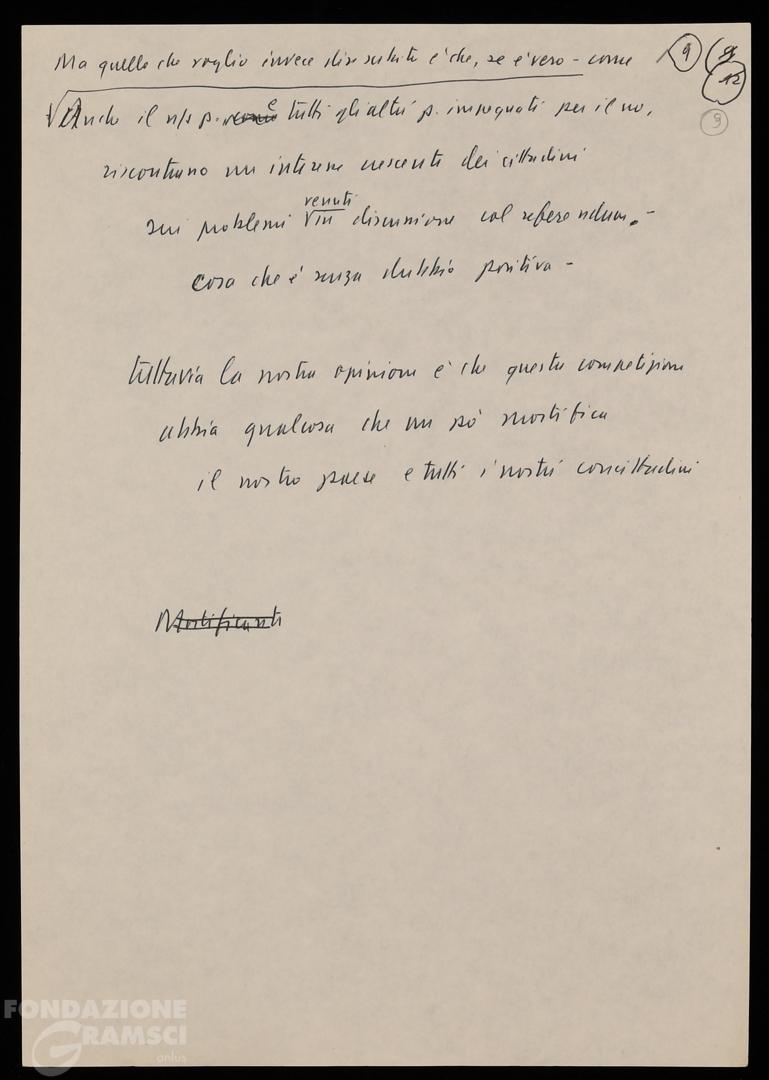 Ma quello che voglio invece dire subito è che, se è vero - come
9
9
12
9
Anche il n/s p. come e tutti gli altri p. impegnati per il no,
riscontrano un interesse crescente dei cittadini
sui problemi venuti in discussione col referendum. -
cosa che è senza dubbio positiva -
tuttavia la nostra opinione è che questa competizione
abbia qualcosa che un pò mortifica
il nostro paese e tutti i nostri concittadini
Mortificanti
FONDAZIONE
GRAMSCI
onlus